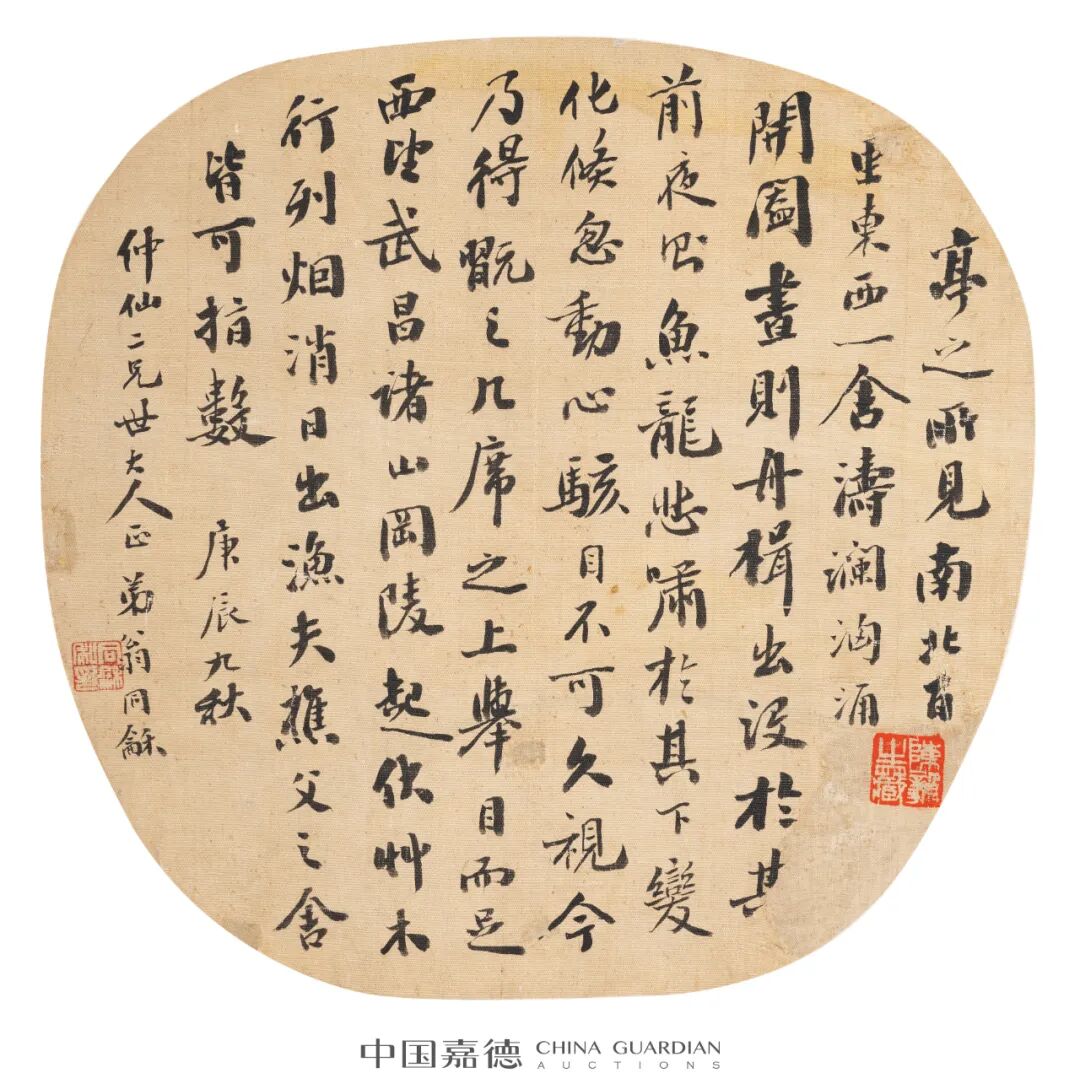 亭之所見南北百
里東西一舍濤瀾洶涌
開闔晝則舟楫出没於其
前夜則魚龍悲嘯於其下變
化倏忽動心駭目不可久視今
乃得翫之几席之上舉目而足
西望武昌諸山岡陵起伏艸木
行列烟消日出漁夫樵父之舍
皆可指數 庚辰九秋
仲仙二兄世大人正 弟翁同龢
同龢私印
中国嘉德 CHINA GUARDIAN
AUCTIONS